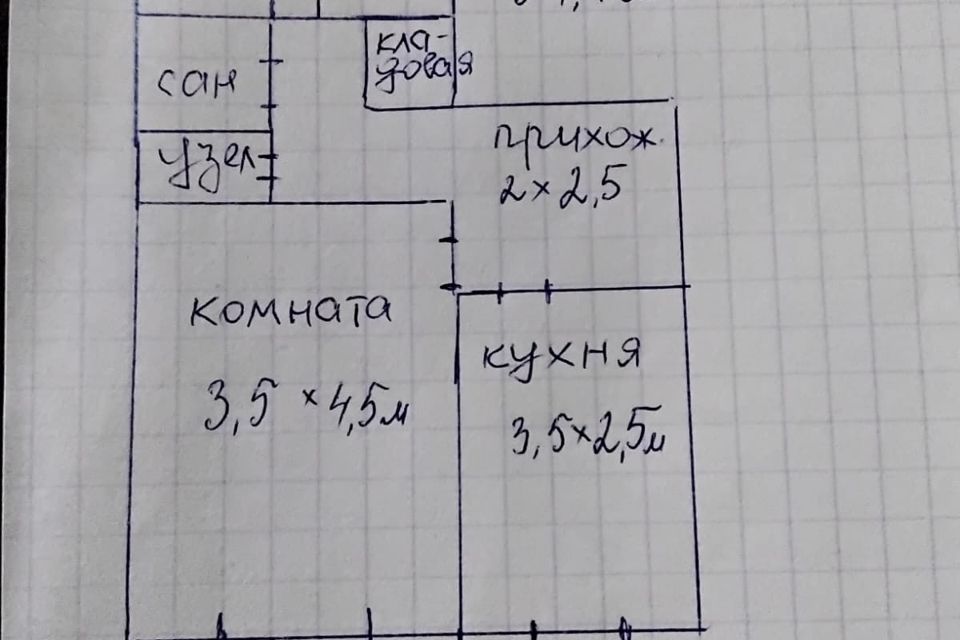 кла-
довая
сан
узел
прихож.
2 × 2,5
комната
3,5 × 4,5м
кухня
3,5×2,5м